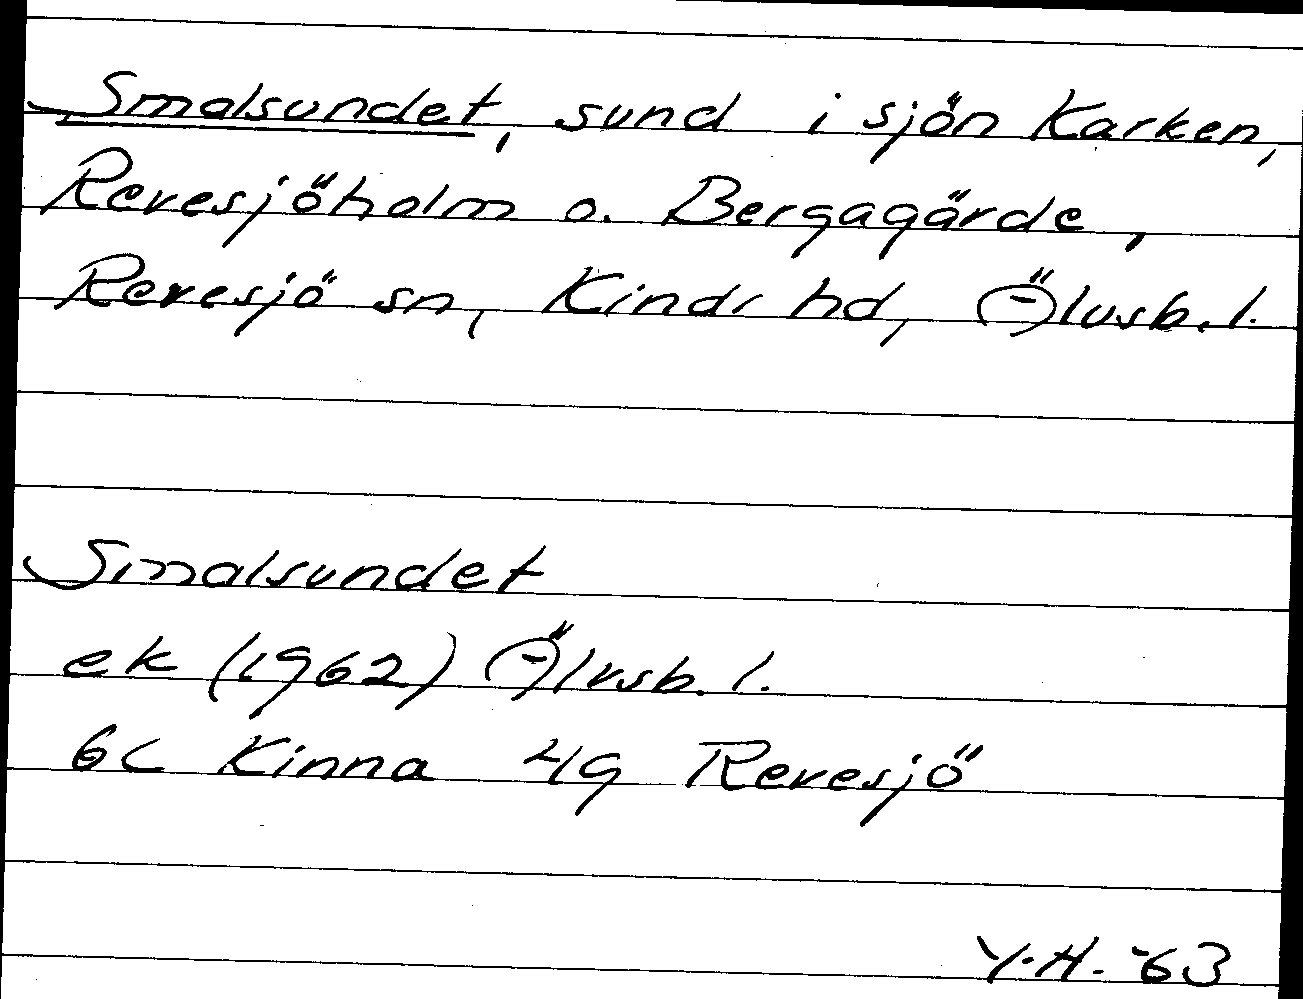 Smalsundet, sund i sjön Karken,
Revesjöholm o. Bergagärde,
Revesjö sn, Kinds hd, Älvsb. l.
Smalsundet
ek (1962) Älvsb. l.
6C Kinna 4g Revesjö
Y.H. -63